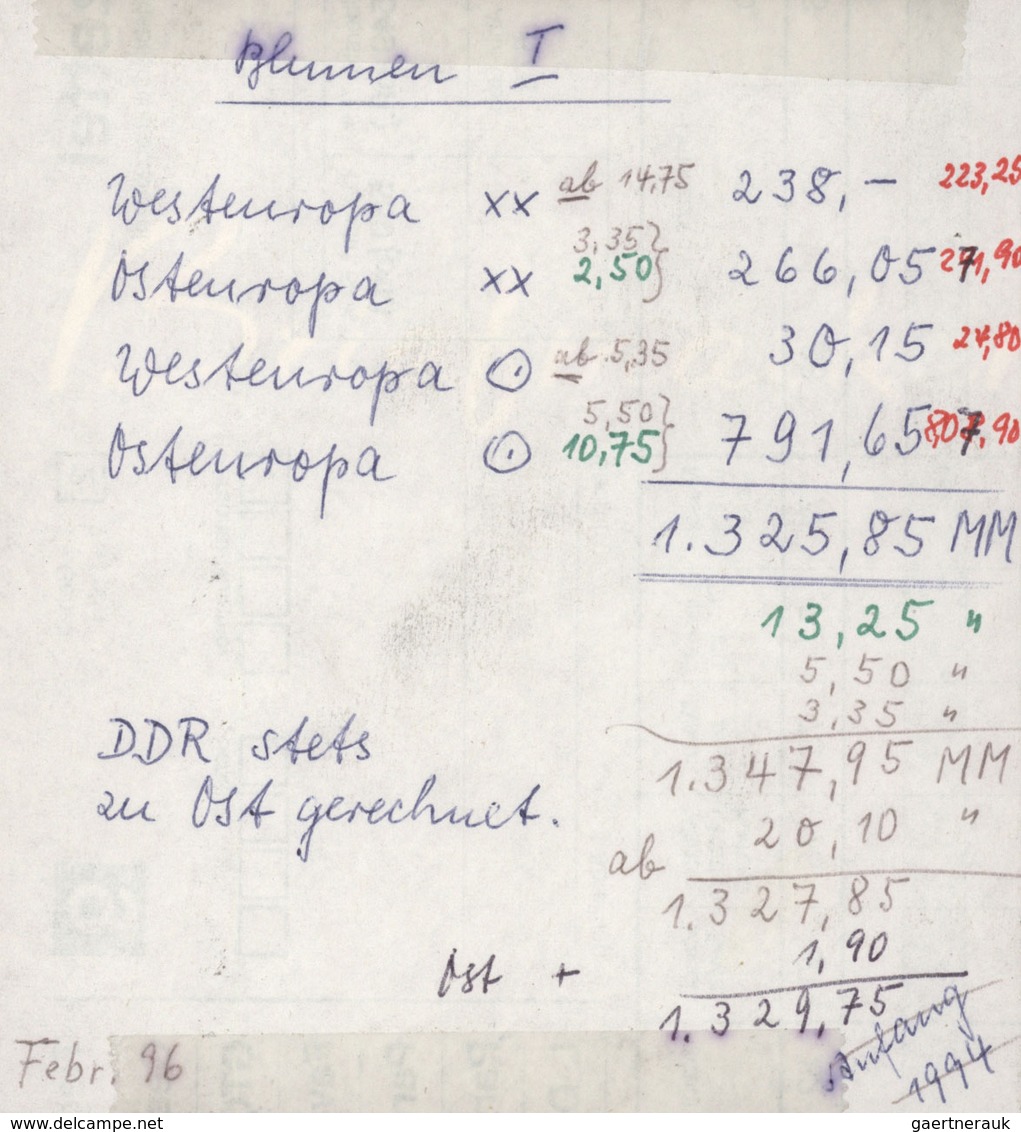 Blumen I
Westeuropa xx ab 14,75 238,- 223,25
3,35}
Osteuropa xx 2,50} 266,05 271,90
Westeuropa ⊙ ab 5,35 30,15 24,80
5,50}
Osteuropa ⊙ 10,75} 791,65 807,90
1.325,85 MM
13,25 "
5,50 "
3,35 "
DDR stets
1.347,95 MM
zu Ost gerechnet.
20,10 "
ab
1.327,85
1,90
Ost +
1.329,75
Anfang
1994
Febr. 96
gaertnerauk